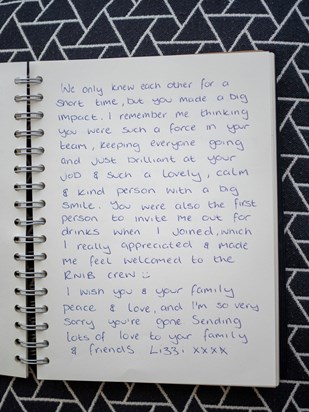 We only knew each other for a
short time, but you made a big
impact. I remember me thinking
you were such a force in your
team, keeping everyone going
and just brilliant at your
job & such a lovely, calm
& kind person with a big
smile. You were also the first
person to invite me out for
drinks when I joined, which
I really appreciated & made
me feel welcomed to the
RNIB crew :)
I wish you & your family
peace & love, and I'm so very
sorry you're gone Sending
lots of love to your family
& friends Lizzi xxxx